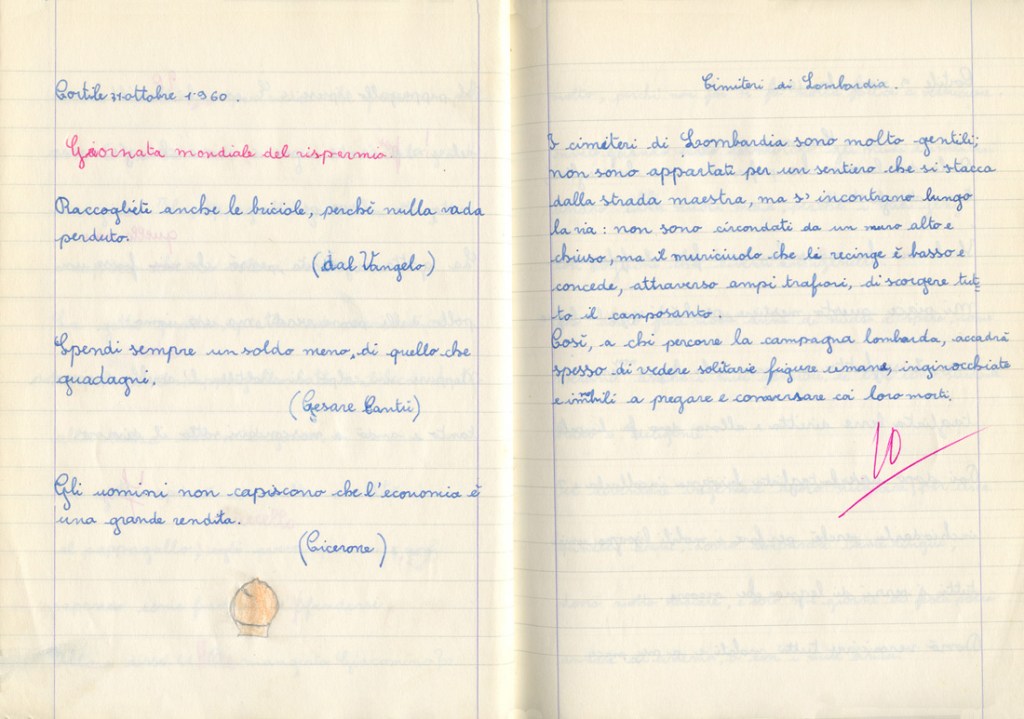 Cortile 31 ottobre 1960.
Giornata mondiale del risparmio.
Raccogliete anche le briciole, perchè nulla vada
perduto.
(dal Vangelo)
Spendi sempre un soldo meno, di quello che
guadagni.
(Cesare Cantù)
Gli uomini non capiscono che l'economia è
una grande rendita.
(Cicerone)
Cimiteri di Lombardia.
I cimiteri di Lombardia sono molto gentili;
non sono appartati per un sentiero che si stacca
dalla strada maestra, ma s'incontrano lungo
la via: non sono circondati da un muro alto e
chiuso, ma il muricciuolo che li recinge è basso e
concede, attraverso ampi trafori, di scorgere tut-
to il camposanto.
Così, a chi percorre la campagna lombarda, accadrà
spesso di vedere solitarie figure umane, inginocchiate
e immobili a pregare e conversare coi loro morti.
10